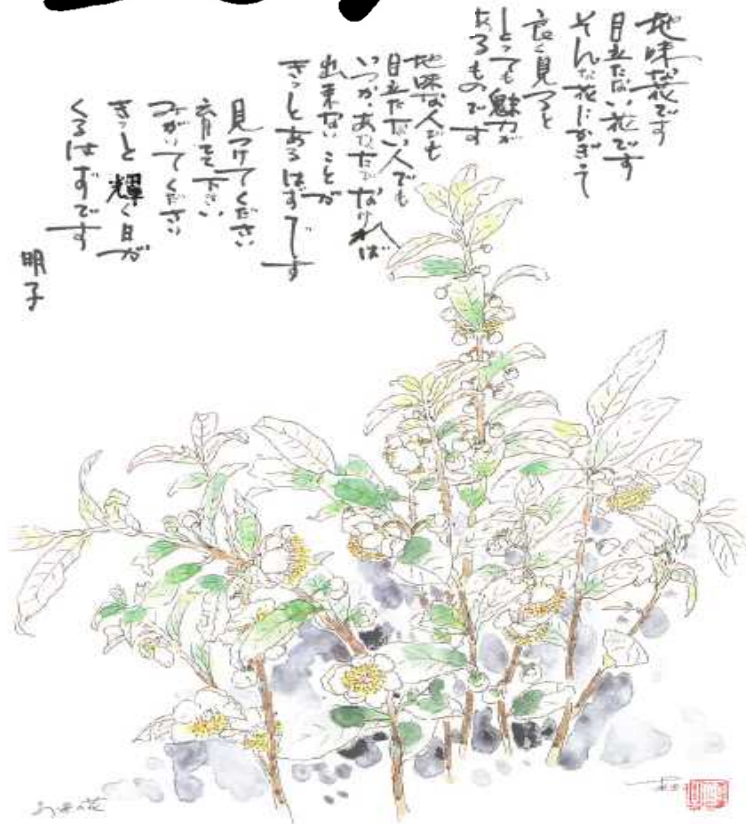 地味な花です
目立たない花です
そんな花にかぎって
良く見ると
とっても魅力が
あるものです
地味な人でも
目立たない人でも
いつか、あなたでなければ
出来ないことが
きっとあるはずです
見つけてください
育てて下さい
みがいてください
きっと輝く日が
くるはずです
明子
お茶の花